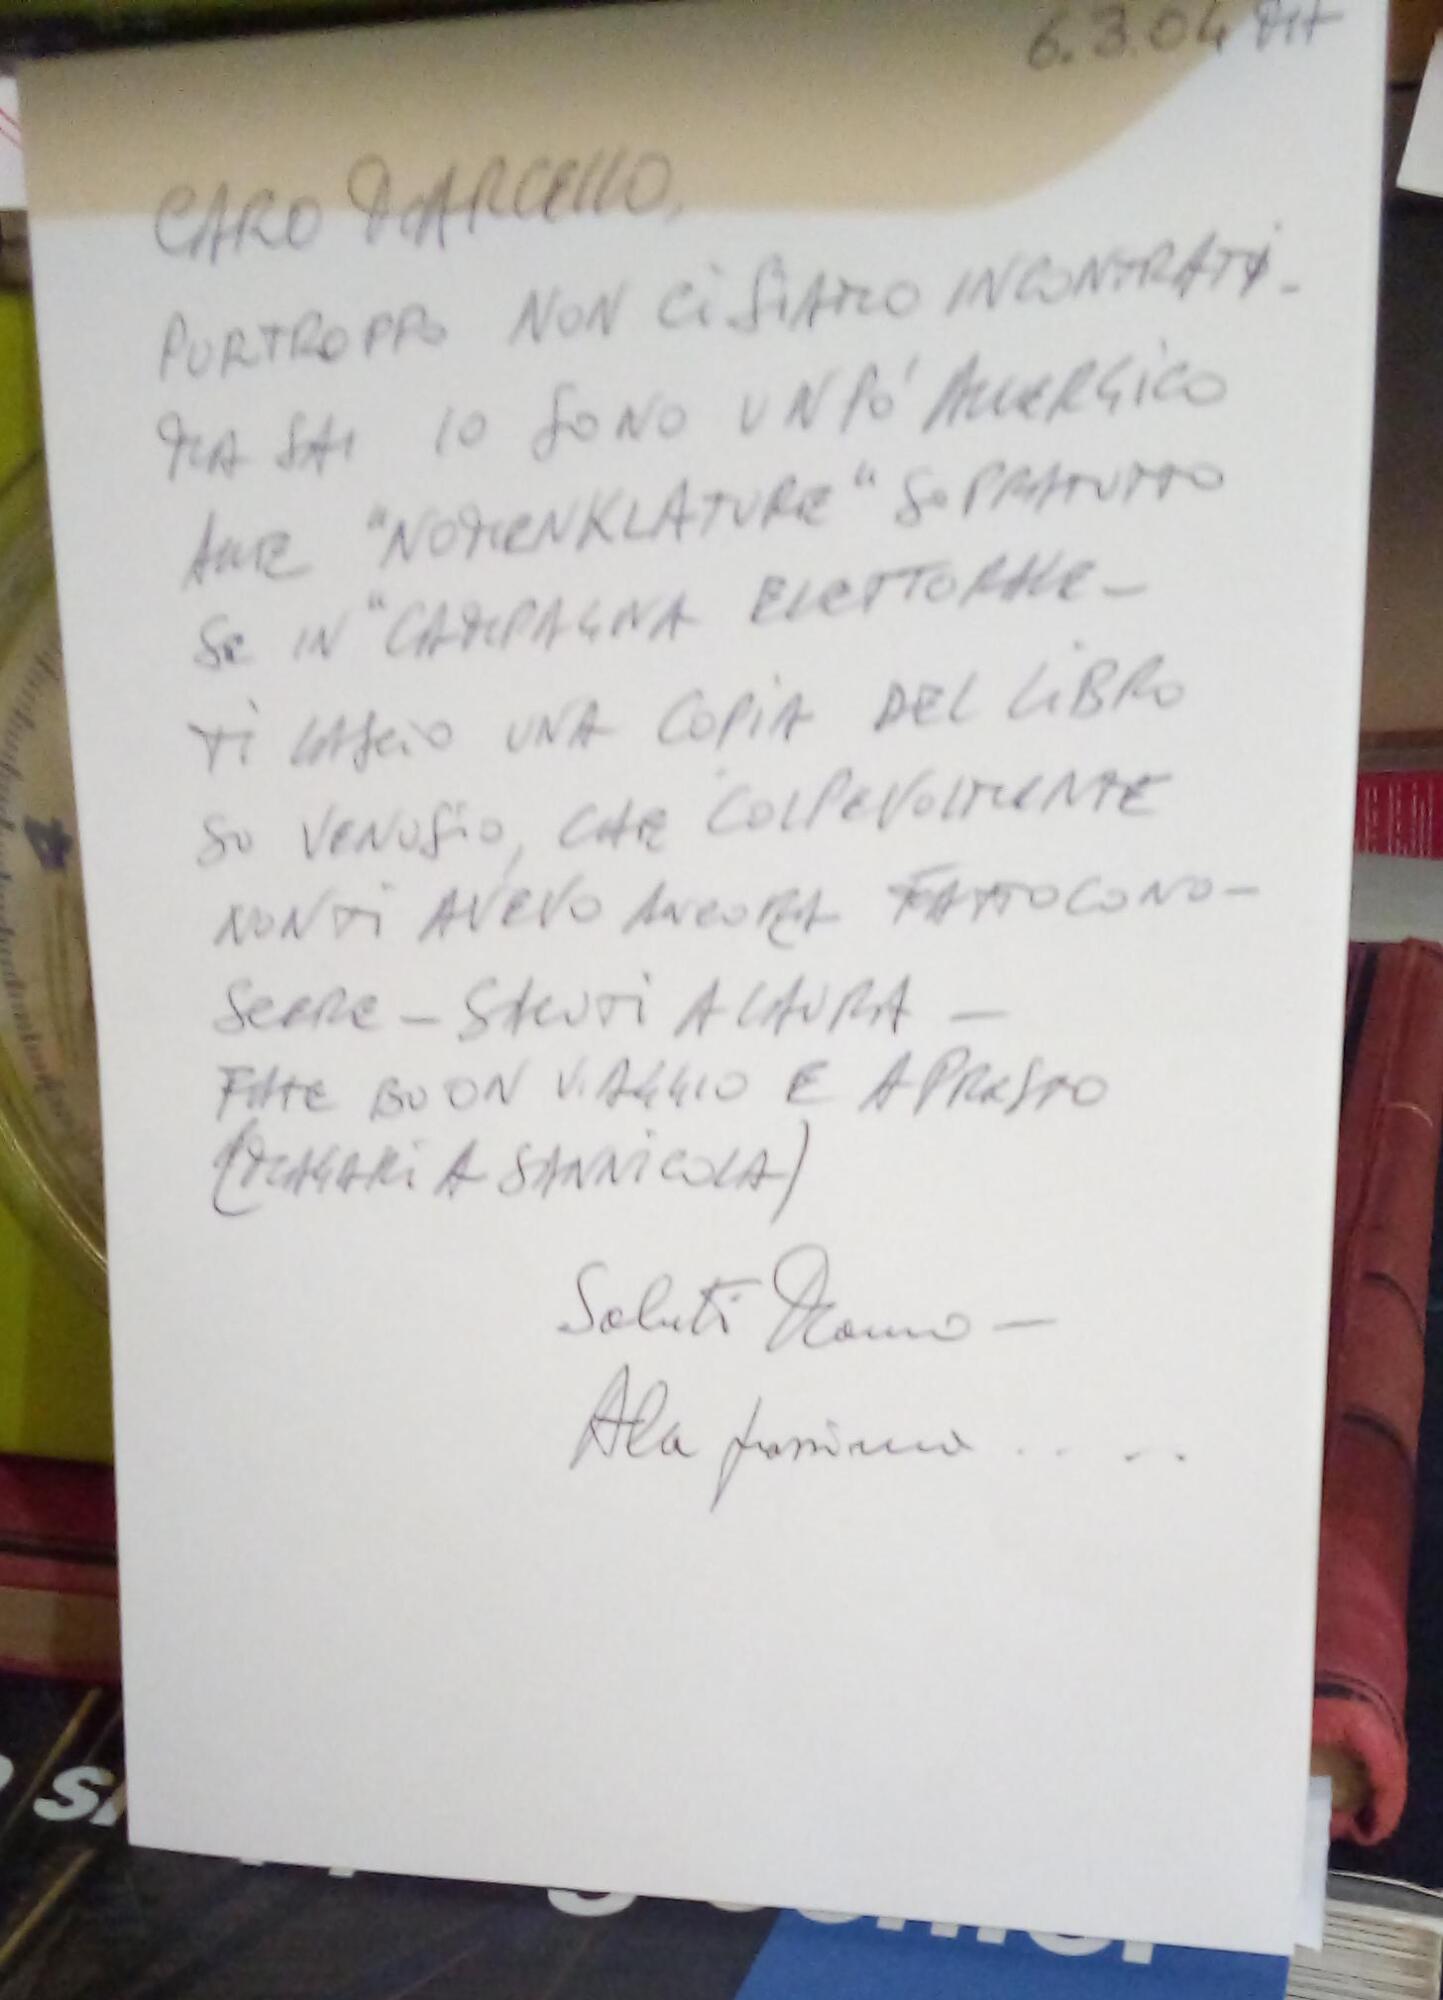 6.3.04 MI
CARO MARCELLO,
PURTROPPO NON CI SIAMO INCONTRATI-
MA SAI IO SONO UN PO' ALLERGICO
ALLE "NOMENKLATURE" SOPRATUTTO
SE IN "CAMPAGNA ELETTORALE-
TI LASCIO UNA COPIA DEL LIBRO
SU VENOSIO, CHE COLPEVOLMENTE
NON TI AVEVO ANCORA FATTO CONO-
SCERE - SALUTI A LAURA -
FATE BUON VIAGGIO E A PRESTO
(MAGARI A SANNICOLA)
Saluti -
Ala prossima .. ..
SI